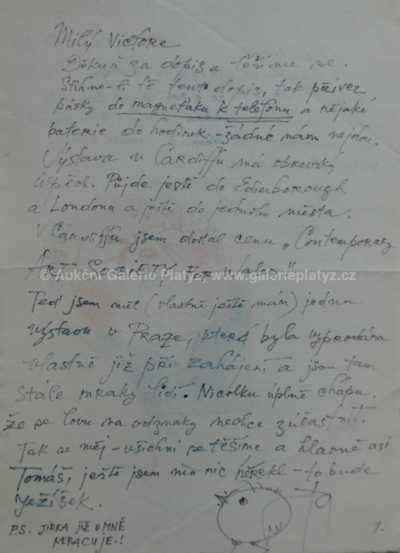 Milý Victore
Děkuji za dopis a těšíme se.
Stihne-li tě tento dopis, tak přivez
pásky do magneťáku k telefonu a nějaké
baterie do hodinek - žádné mám nejdou.
Výstava v Cardiffu má obrovský
úspěch. Půjde ještě do Edinborough
a Londonu a ještě do jednoho města.
V Cardiffu jsem dostal cenu „Contemporary
Art Society
© Aukční Galerie Platýz, www.galerieplatyz.cz
Teď jsem měl (vlastně ještě mám) jednu
výstavu v Praze, která byla vyprodána
vlastně již při zahájení a jsou tam
stále mraky lidí. Nicolku úplně chápu,
že se lovu na odznaky nechce zúčastnit.
Tak se měj - všichni se těšíme a hlavně asi
Tomáš, ještě jsem mu nic neřekl - to bude
Ježíšek.
P.S. JIRKA JIŽ U MNĚ
NEPRACUJE!